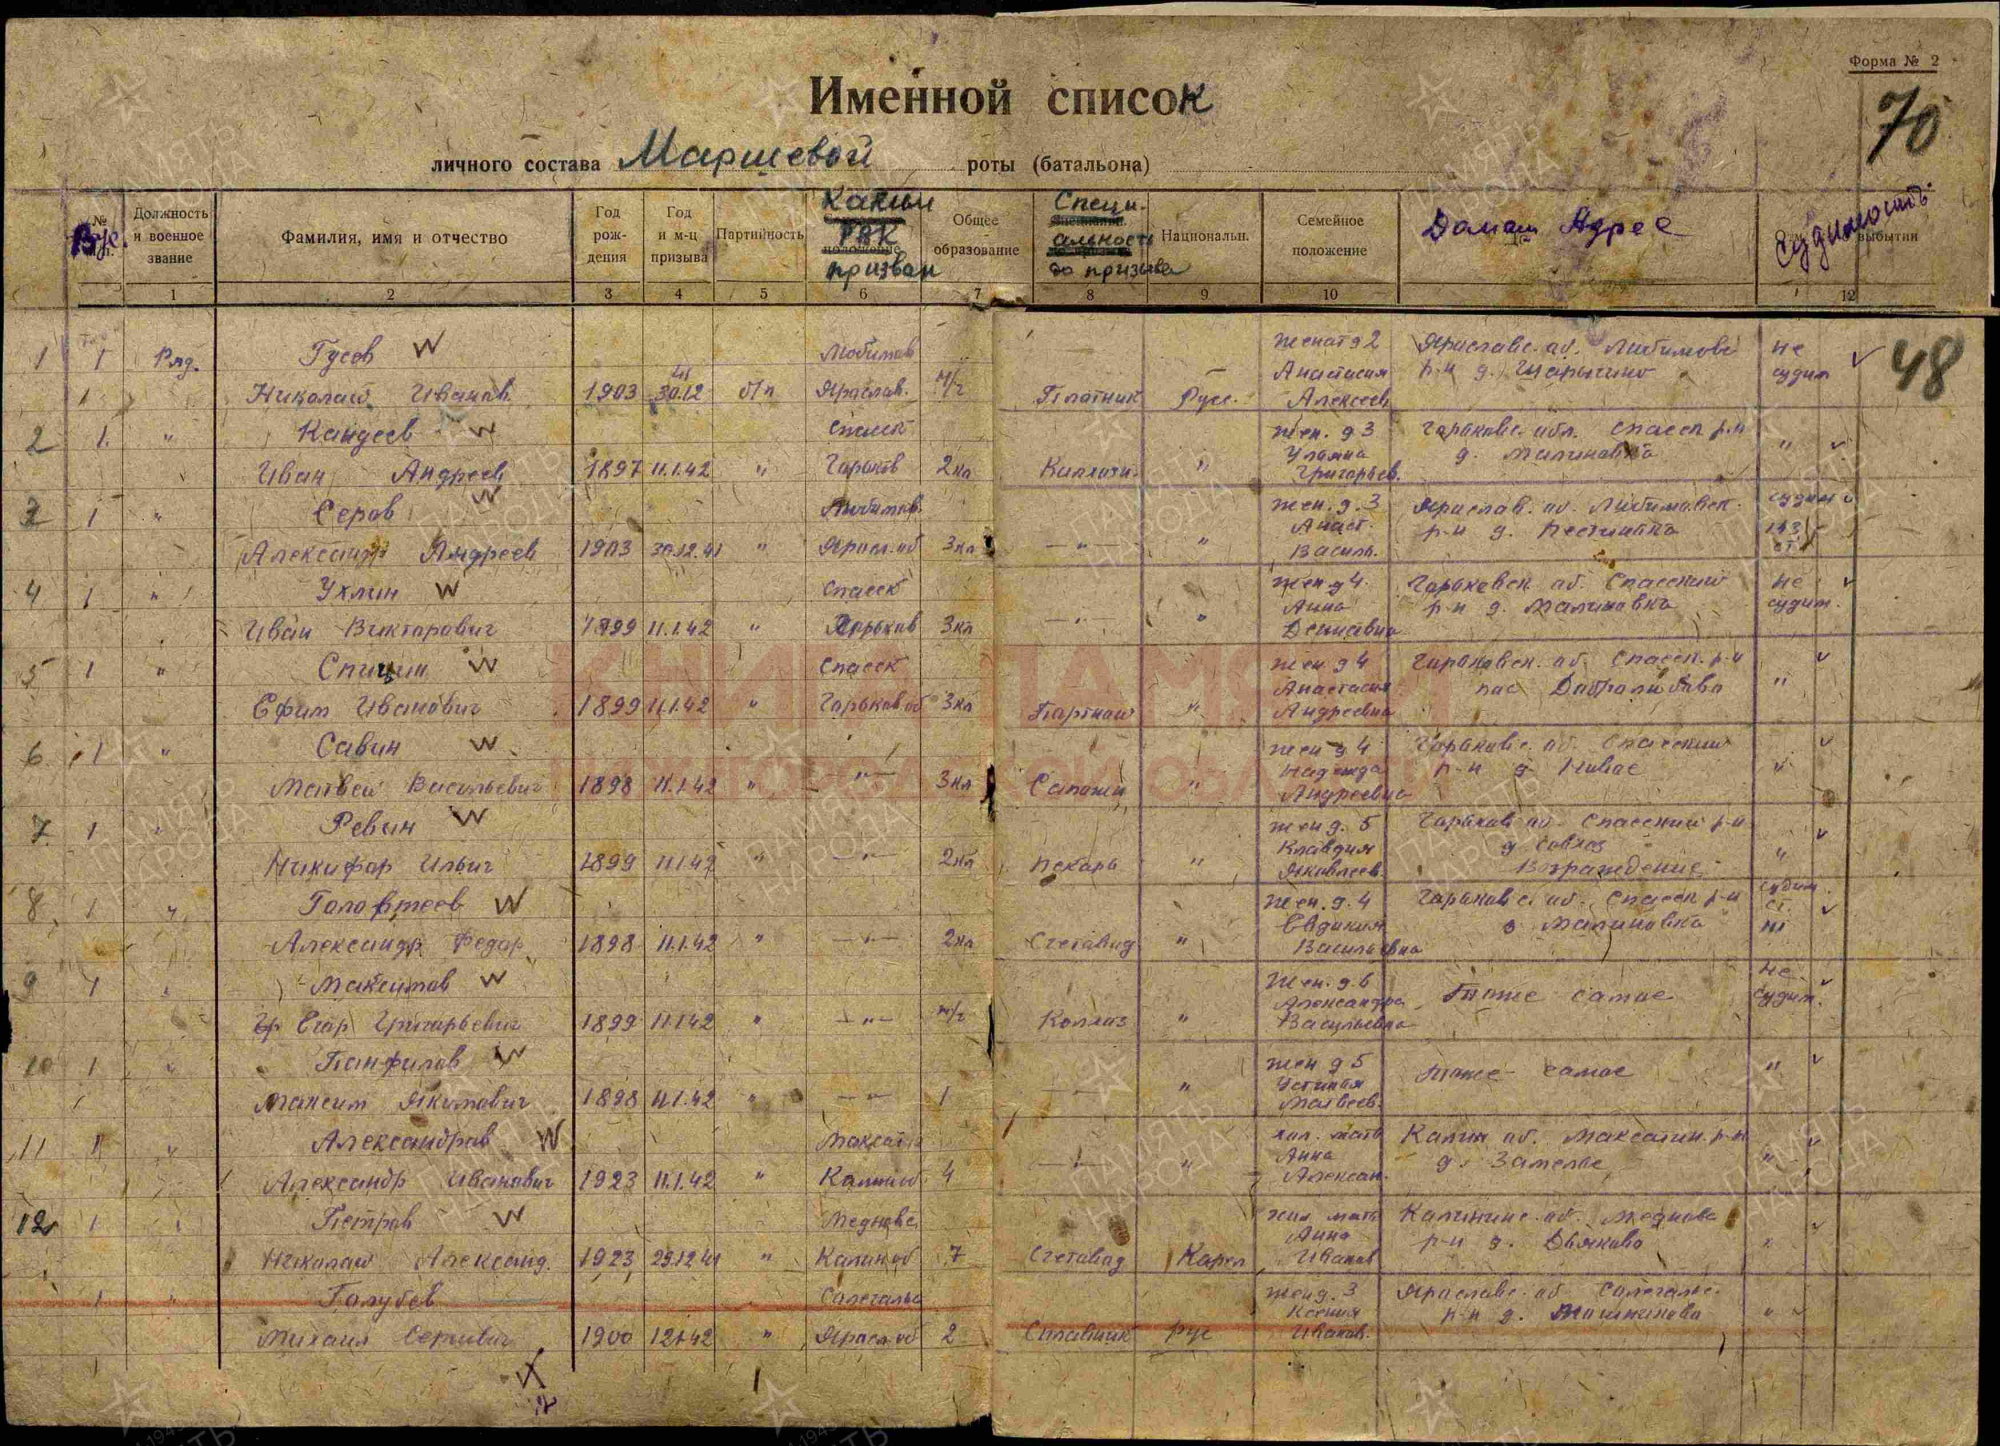 Форма № 2
70
Именной список
личного состава Маршевой роты (батальона)
№
Вус.
Должность и военное звание
Фамилия, имя и отчество
Год рождения
Год и м-ц призыва
Партийность
Каким РВК призван
Общее образование
Специальность до призыва
Национальн.
Семейное положение
Домаш Адрес
Судимость.
выбытии
1 2 3 4 5 6 7 8 9 10 12
48
1 1 Ряд. Гусов Любимов женат д 2 Ярославс. об. Любимовс не
Анастасия р-н д. судим
Николай Иванов. 1903 30.12 б/п Яраслав. м/г Плотник Русс. Алексеев
2 1. " Кандеев Спасск жен. д 3 Горьковс. обл. Спасск р-н "
Ульяна д. Малиновка
Иван Андреев 1897 11.1.42 " Горьков 2 кл Колхозн. " Григорьев.
3 1 " Серов Любимов. жен. д. 3 Яраслав. об. Любимовск. судим
Анаст. р-н д.
Александр Андреев 1903 30.12.41 " Яросл. об 3 кл — " — " Василь. ст.
4 1 " Ухлин Спасск жен. д 4. Горьковск. об. Спасский не
Анна р-н д. Малиновка судим.
Иван Викторович 1899 11.1.42 " Горьков 3 кл — " — "
5 1 " Спицин Спасск жен. д 4 Горьковск. об. Спасск. р-н
Анастасия пос Добролюбово "
Ефим Иванович 1899 11.1.42 " Горьков об 3 кл Портной " Андреевна
6 1 " Савин жен д 4 Горьковс. об. Спасский
Надежда р-н д Новое "
Матвей Васильевич 1898 11.1.42 " — " — 3 кл Сапожн " Андреевна
7 1 " Ревин жен д. 5 Горьков об. Спасский р-н
Клавдия д Совхоз "
Никифор Ильич 1899 11.1.42 " — " — 2 кл Пекарь " Яковлеев. Возраждение
8 1 " жен. д. 4 Горьковс. об. Спасск р-н судим. ст.
Евдокия д Малиновка
Александр Федор 1898 11.1.42 " — " — 2 кл Счетовод " Васильевна
9 1 " Максимов жен. д. 6 Тоже самое не судим.
Александра
Егор Григорьевич 1899 11.1.42 " — " — м/г Колхоз " Васильевна
10 1 " Панфилов жен д 5 тоже самое "
Устинья
Максим Якимович 1898 11.1.42 " — " — 1 — " — " Матвеев.
11 1 " Александров Максат хол. мать Калин об. Максатин. р-н
Анна д. Замелье "
Александр Иванович 1923 11.1.42 " Калин об. 4 — " — " Алексан.
12 1 " Петров Медновс хол мать Калининс. об. Медновс
Анна р-н д. Дьяково "
Николай Александ. 1923 29.12.41 " Калин об 7 Счетовод Карел Иванов
1 " Голубев Солегальс жен д. 3 Ярославс. об Солегальс.
Ксения р-н д. "
Михаил Сергевич 1900 12.1.42 " Яросл. об 2 рус Иванов.
КНИГА ПАМЯТИ
НИЖЕГОРОДСКОЙ ОБЛАСТИ
ПАМЯТЬ НАРОДА